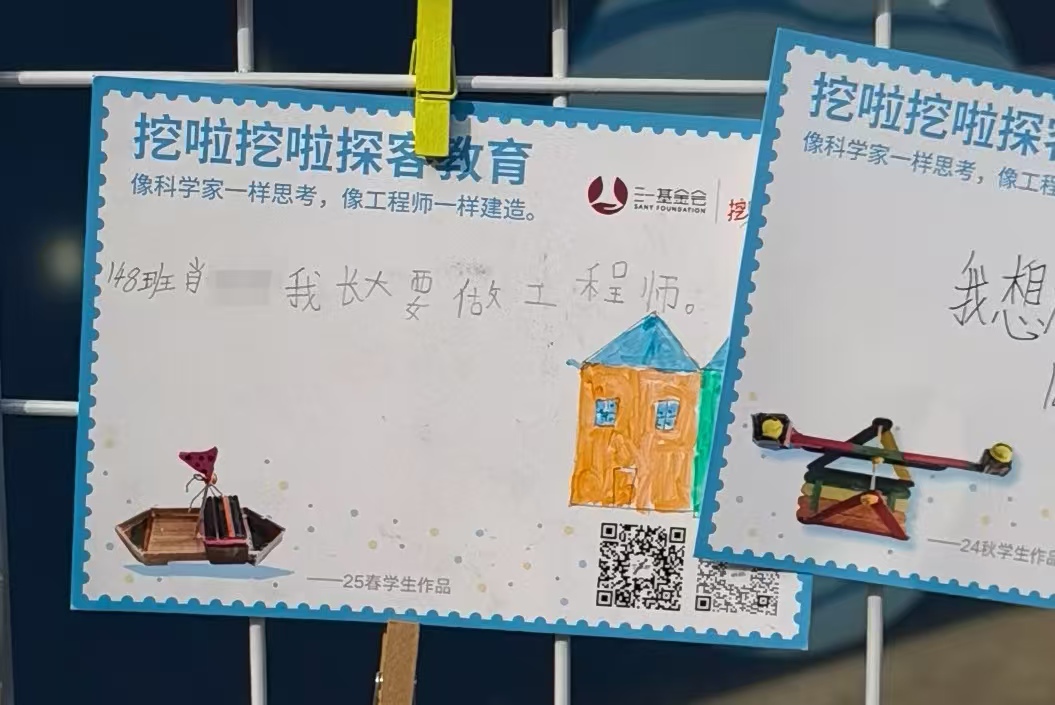 挖啦挖啦探客教育
像科学家一样思考，像工程师一样建造。
三一基金会
SANY FOUNDATION
挖
148班肖
我长大要做工程师。
——25春学生作品
挖啦挖啦探
像科学家一样思考，像工程
我想
——24秋学生作品